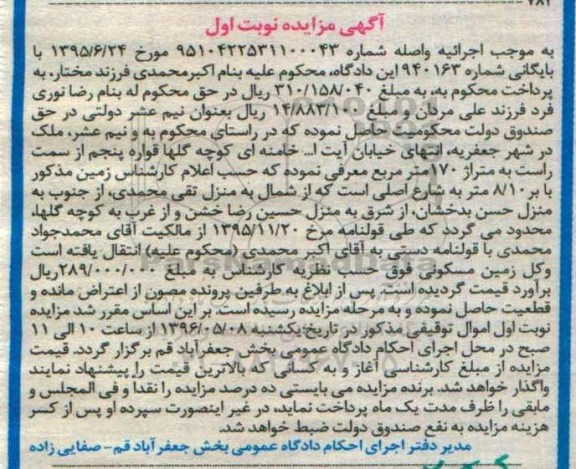 ۷۸۱
آگهی مزایده نوبت اول
به موجب اجرائیه واصله شماره ۹۵۱۰۴۲۲۵۳۱۱۰۰۰۴۳ مورخ ۱۳۹۵/۶/۲۴ با
بایگانی شماره ۹۴۰۱۶۳ این دادگاه، محکوم علیه بنام اکبرمحمدی فرزند مختار، به
پرداخت محکوم به، به مبلغ ۳۱۰/۱۵۸/۰۴۰ ریال در حق محکوم له بنام رضا نوری
فرد فرزند علی مردان و مبلغ ۱۴/۸۸۳/۱۰۰ ریال بعنوان نیم عشر دولتی در حق
صندوق دولت محکومیت حاصل نموده که در راستای محکوم به و نیم عشر، ملک
در شهر جعفریه، انتهای خیابان آیت ا... خامنه ای کوچه گلها قواره پنجم از سمت
راست به متراژ ۱۷۰متر مربع معرفی نموده که حسب اعلام کارشناس زمین مذکور
با بر ۸/۱۰ متر به شارع اصلی است که از شمال به منزل تقی محمدی، از جنوب به
منزل حسن بدخشان، از شرق به منزل حسین رضا خشن و از غرب به کوچه گلها،
محدود می گردد که طی قولنامه مرخ ۱۳۹۵/۱۱/۲۰ از مالکیت آقای محمدجواد
محمدی با قولنامه دستی به آقای اکبر محمدی (محکوم علیه) انتقال یافته است
وکل زمین مسکونی فوق حسب نظریه کارشناس به مبلغ ۲۸۹/۰۰۰/۰۰۰ریال
برآورد قیمت گردیده است. پس از ابلاغ به طرفین پرونده مصون از اعتراض مانده و
قطعیت حاصل نموده و به مرحله مزایده رسیده است. بر این اساس مقرر شد مزایده
نوبت اول اموال توقیفی مذکور در تاریخ یکشنبه ۱۳۹۶/۰۵/۰۸ از ساعت ۱۰ الی ۱۱
صبح در محل اجرای احکام دادگاه عمومی بخش جعفرآباد قم برگزار گردد. قیمت
مزایده از مبلغ کارشناسی آغاز و به کسانی که بالاترین قیمت را پیشنهاد نمایند
واگذار خواهد شد. برنده مزایده می بایستی ده درصد مزایده را نقدا و فی المجلس و
مابقی را ظرف مدت یک ماه پرداخت نماید، در غیر اینصورت سپرده او پس از کسر
هزینه مزایده به نفع صندوق دولت ضبط خواهد شد.
مدیر دفتر اجرای احکام دادگاه عمومی بخش جعفرآباد قم - صفایی زاده